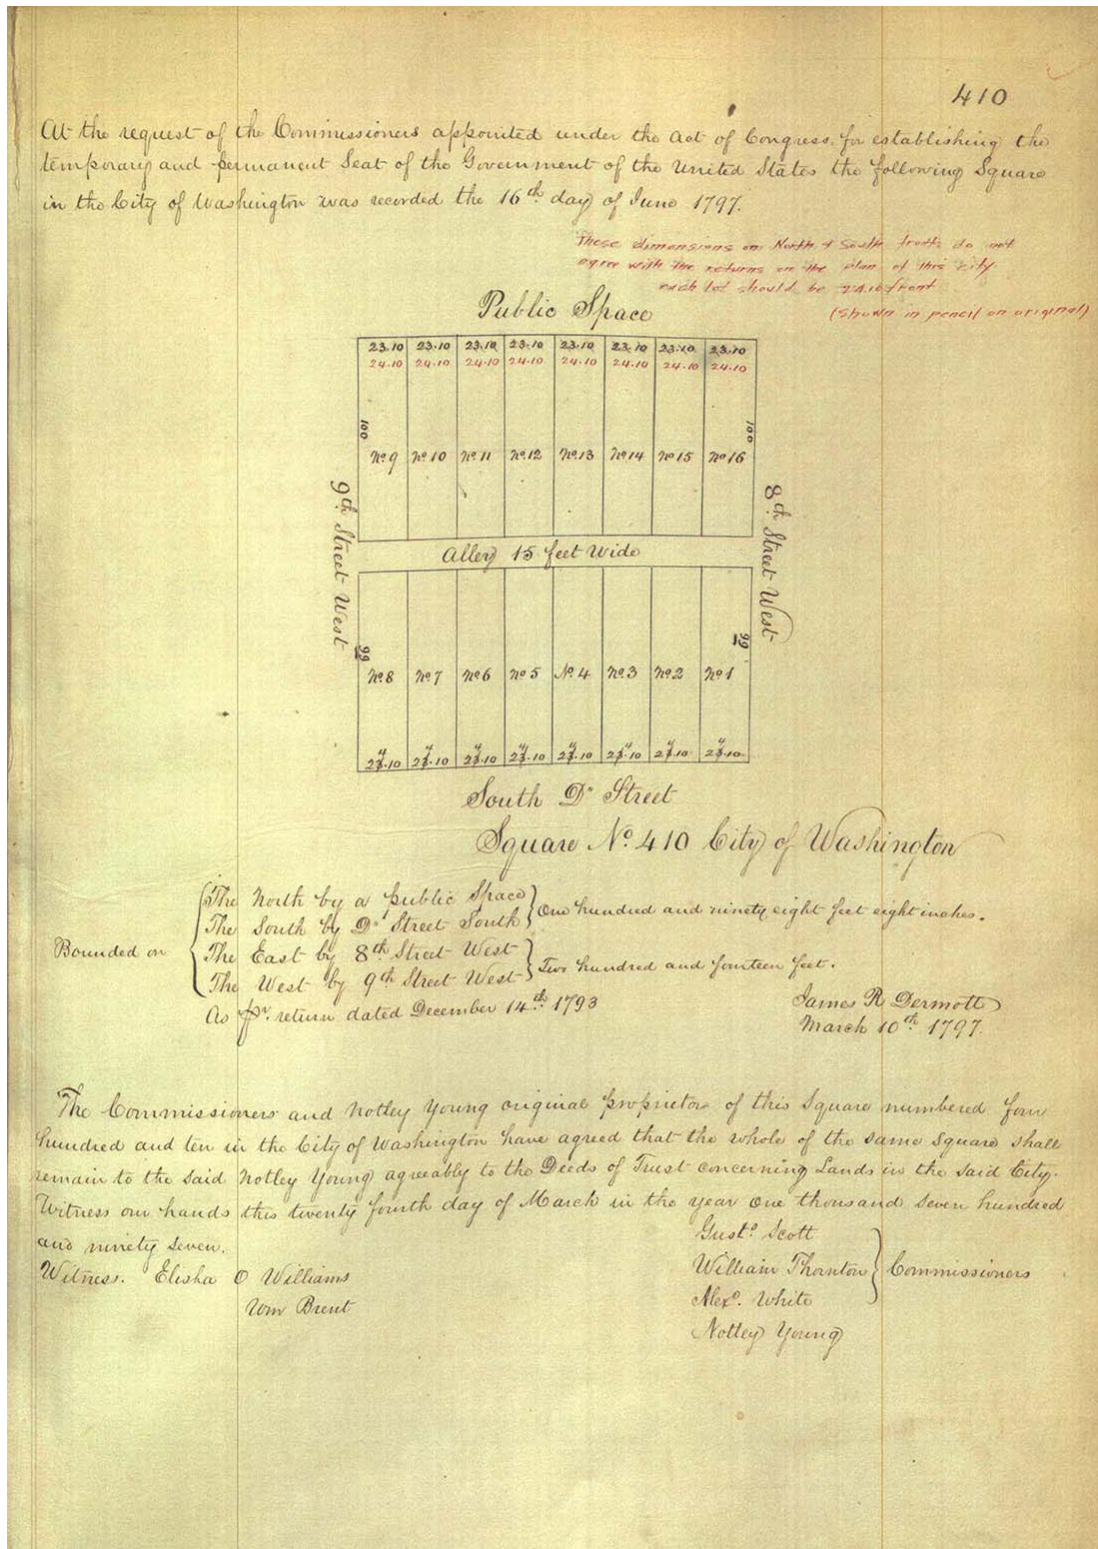 410
At the request of the Commissioners appointed under the Act of Congress for establishing the
temporary and permanent Seat of the Government of the United States the following Square
in the City of Washington was recorded the 16th day of June 1797.
These dimensions on North & South fronts do not
agree with the returns on the plan of this city
each lot should be 24.10 front
(Shown in pencil on original)
Public Space
23.10 23.10 23.10 23.10 23.10 23.10 23.10 23.10
24.10 24.10 24.10 24.10 24.10 24.10 24.10 24.10
100 100
No 9 No 10 No 11 No 12 No 13 No 14 No 15 No 16
9th Street West
8th Street West
Alley 15 feet Wide
99 99
No 8 No 7 No 6 No 5 No 4 No 3 No 2 No 1
4 4 4 4 4 4 4 4
23.10 23.10 23.10 23.10 23.10 23.10 23.10 23.10
South D. Street
Square No. 410 City of Washington
Bounded on
The North by a public Space
The South by D. Street South
One hundred and ninety eight feet eight inches.
The East by 8th Street West
The West by 9th Street West
Two hundred and fourteen feet.
As pr. return dated December 14th 1793
James R Dermott
March 10th 1797.
The Commissioners and Notley Young original proprietor of this Square numbered four
hundred and ten in the City of Washington have agreed that the whole of the same Square shall
remain to the said Notley Young agreeably to the Deeds of Trust concerning Lands in the said City.
Witness our hands this twenty fourth day of March in the year one thousand seven hundred
and ninety seven.
Gusto. Scott
Witness. Elisha O Williams
William Thornton
Commissioners
Wm Brent
Alexo. White
Notley Young